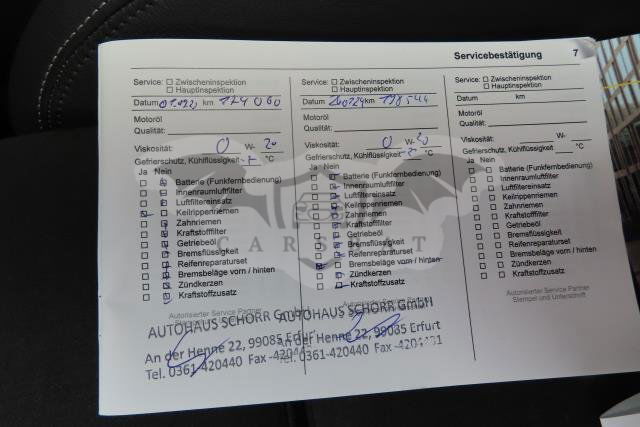 Servicebestätigung 7
Service: Zwischeninspektion
Hauptinspektion
Datum km 174060
Motoröl
Qualität:
Viskosität: 0 W- 20
Gefrierschutz, Kühlflüssigkeit °C
Ja Nein
Batterie (Funkfernbedienung)
Innenraumluftfilter
Luftfiltereinsatz
Keilrippenriemen
Zahnriemen
Kraftstofffilter
Getriebeöl
Bremsflüssigkeit
Reifenreparaturset
Bremsbeläge vorn / hinten
Zündkerzen
Kraftstoffzusatz
Autorisierter Service Partner
AUTOHAUS SCHORR GmbH
An der Henne 22, 99085 Erfurt
Tel. 0361-420440 Fax -42044
Service: Zwischeninspektion
Hauptinspektion
Datum km 198544
Motoröl
Qualität:
Viskosität: 0 W- 20
Gefrierschutz, Kühlflüssigkeit °C
Ja Nein
Batterie (Funkfernbedienung)
Innenraumluftfilter
Luftfiltereinsatz
Keilrippenriemen
Zahnriemen
Kraftstofffilter
Getriebeöl
Bremsflüssigkeit
Reifenreparaturset
Bremsbeläge vorn / hinten
Zündkerzen
Kraftstoffzusatz
AUTOHAUS SCHORR GmbH
An der Henne 22, 99085 Erfurt
Tel. 0361-420440 Fax
Service: Zwischeninspektion
Hauptinspektion
Datum km
Motoröl
Qualität:
Viskosität: W-
Gefrierschutz, Kühlflüssigkeit °C
Ja Nein
Batterie (Funkfernbedienung)
Innenraumluftfilter
Luftfiltereinsatz
Keilrippenriemen
Zahnriemen
Kraftstofffilter
Getriebeöl
Bremsflüssigkeit
Reifenreparaturset
Bremsbeläge vorn / hinten
Zündkerzen
Kraftstoffzusatz
Autorisierter Service Partner
Stempel und Unterschrift